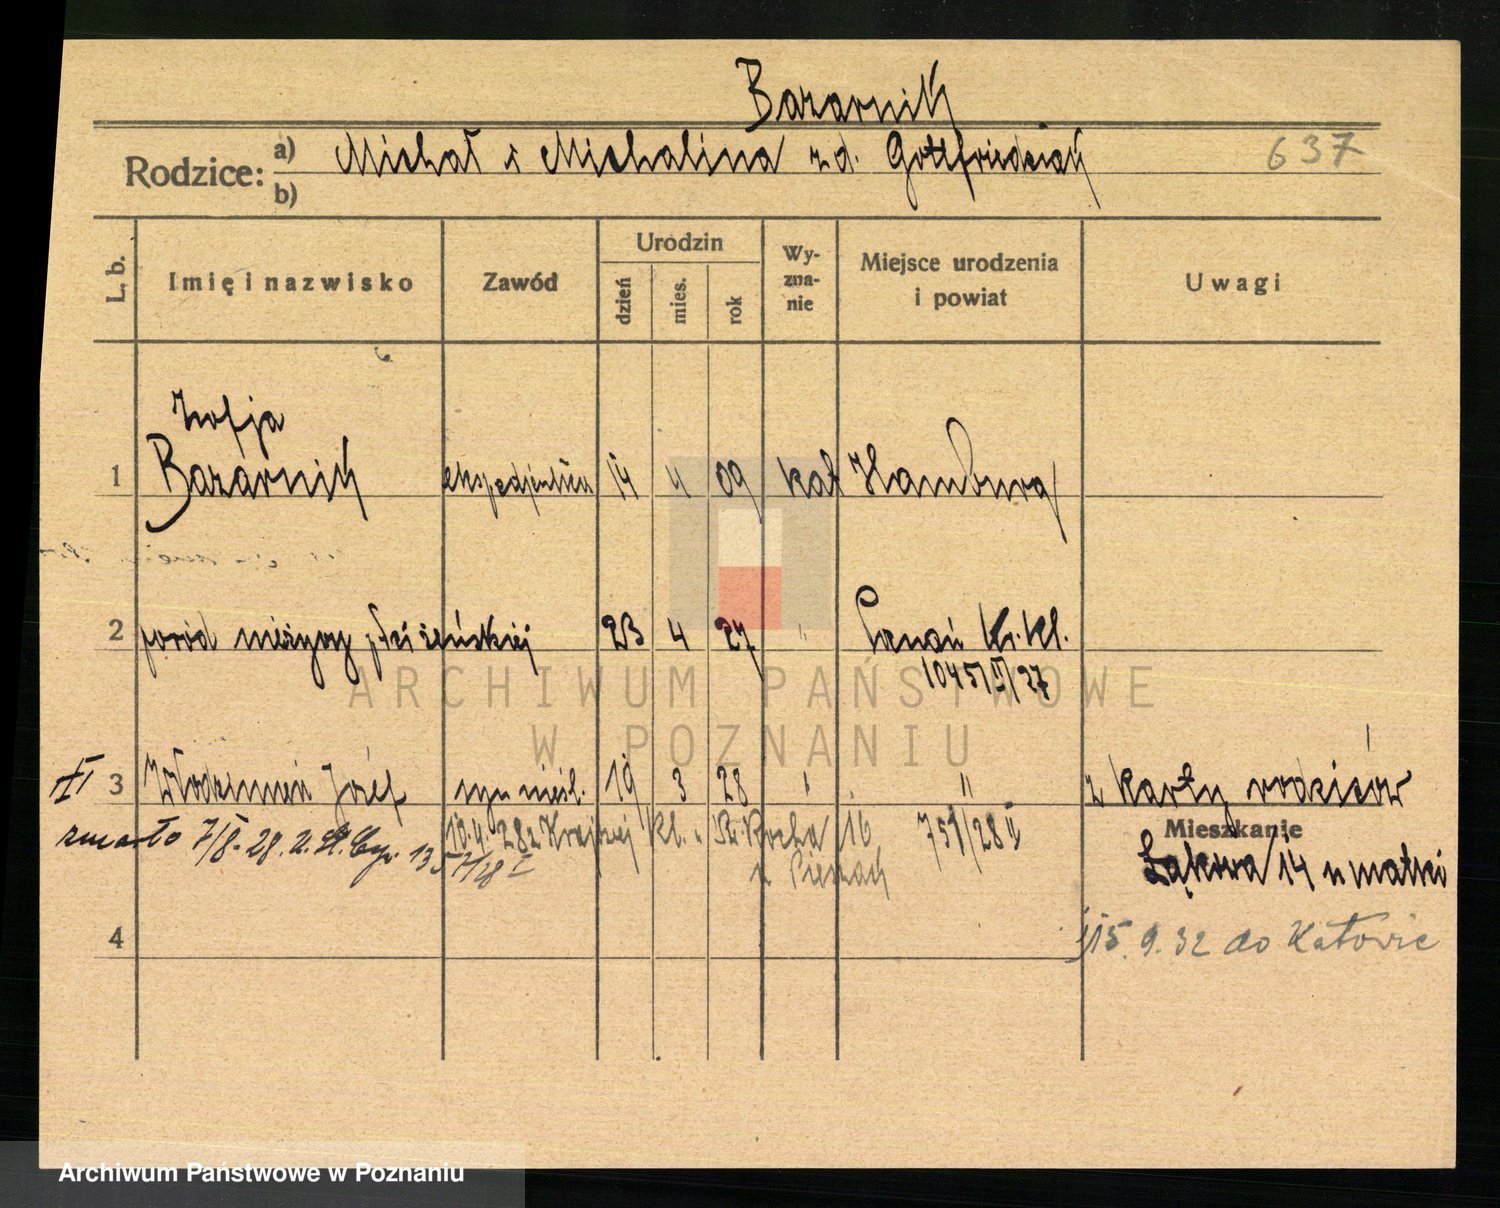 Bazarnik
Rodzice: a) Michał i Michalina z d. Gottfriedziak 637
b)
L. b. Imię i nazwisko Zawód Urodzin dzień mies. rok Wyzna-nie Miejsce urodzenia i powiat Uwagi
Zofja
1 Bazarnik ekspedjentka 14 4 09 kat Hamburg
2 poród nieżywy płci żeńskiej 23 4 27 " Poznań Kr. kl.
1045/II/27
ARCHIWUM PAŃSTWOWE
W POZNANIU
II 3 Włodzimierz Józef syn nieśl. 19 3 28 " " z karty rodziców
zmarło 7/8.28. 1357/28 I
10.4.28 z Krajowej kl. Św. Rocha 16 751/28 II
u Pieszak
Mieszkanie
Łąkowa 14 u matki
4 15.9.32 do Katowic
Archiwum Państwowe w Poznaniu